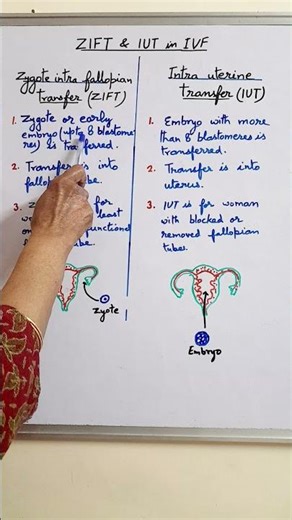 ZIFT & IUT in IVF
Zygote intra fallopian
transfer (ZIFT)
1. Zygote or early
embryo (upto 8 blastome
res) is transferred.
2. Transfer is into
fallo be.
3. Z for
w least
on functional
tube.
Zyote
Intra uterine
transfer (IUT)
1. Embryo with more
than 8 blastomeres is
transferred.
2. Transfer is into
uterus.
3. IUT is for woman
with blocked or
removed fallopian
tube.
Embryo